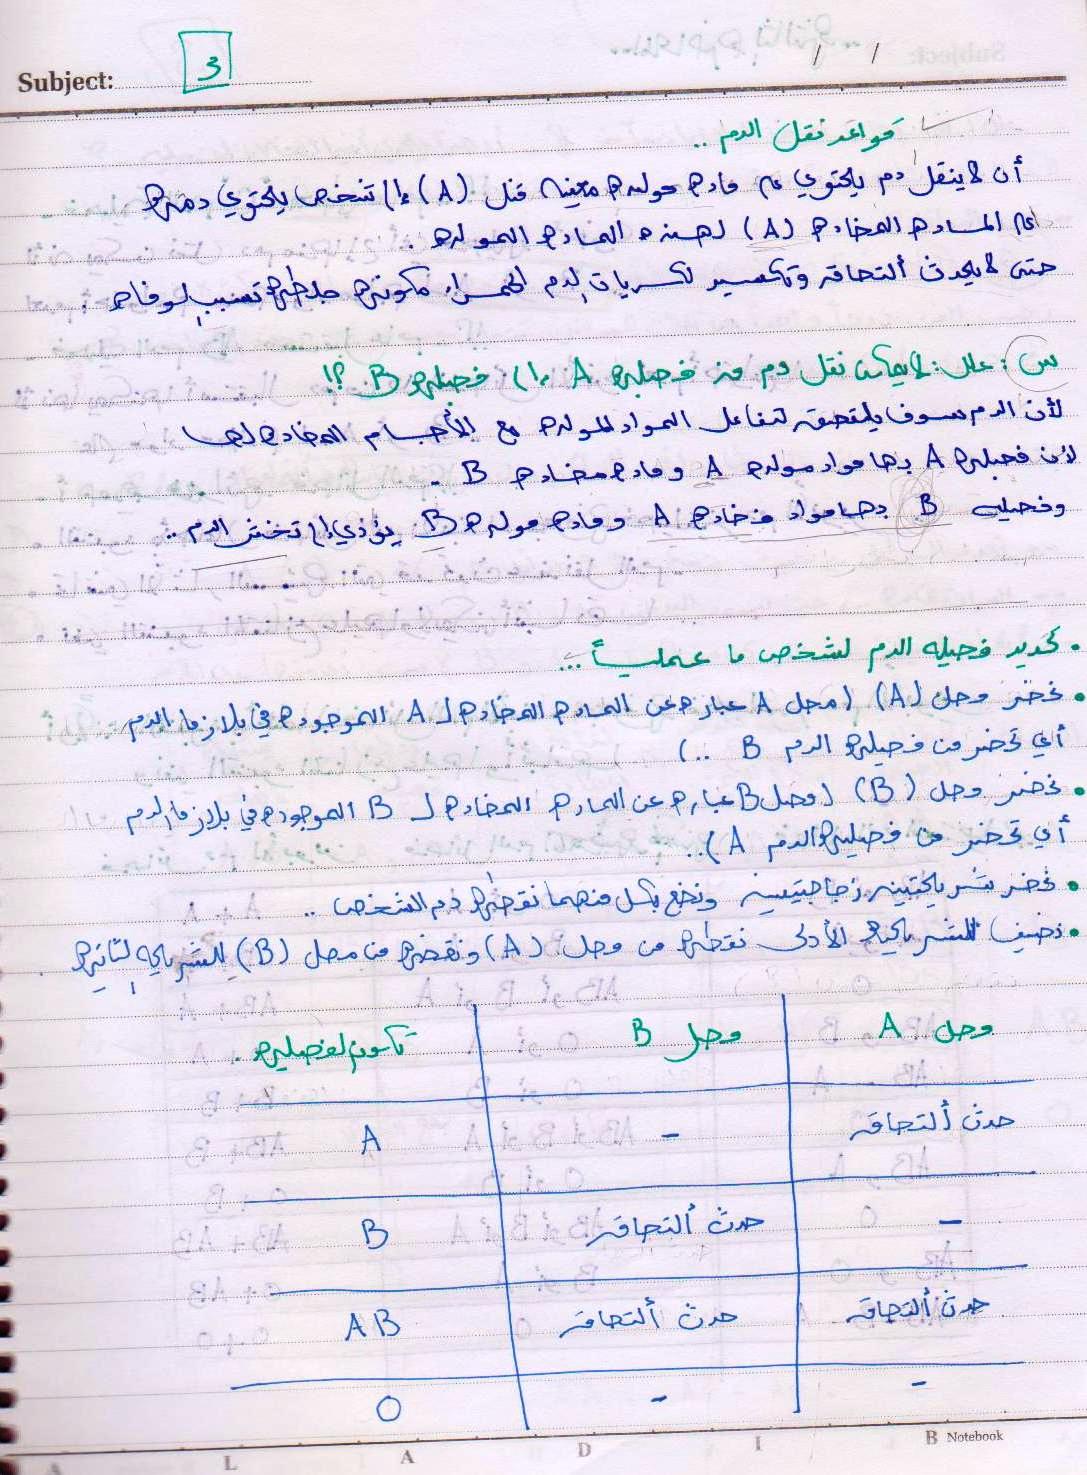 Subject: 3 / /
قواعد نقل الدم ..
أن لا ينقل دم يحتوي على مادة مولدة معينة مثل (A) إلى شخص يحتوي دمه
على المادة المضادة (A) لهذه المادة المولدة .
حتى لا يحدث ألتصاق وتكسير لكريات الدم الحمراء مكونة جلطة تسبب لوفاة .
س : علل : لا يمكن نقل دم من فصيلة A إلى فصيلة B ؟!
لأن الدم سوف يلتصق لتفاعل المواد المولدة مع الأجسام المضادة لها
لأن فصيلة A بها مواد مولدة A و مادة مضادة B .
وفصيلة B بها مواد مضادة A ومادة مولدة B يؤدي إلى تخثر الدم ..
• تحديد فصيلة الدم لشخص ما عملياً ...
• نحضر مصل (A) (مصل A عبارة عن المادة المضادة لـ A الموجودة في بلازما الدم
أي تحضر من فصيلة الدم B ..)
• نحضر مصل (B) (مصل B عبارة عن المادة المضادة لـ B الموجودة في بلازما الدم
أي تحضر من فصيلة الدم A )..
• نحضر شريحتين زجاجيتين ونضع بكل منهما نقطة دم الشخص ..
• نضيف للشريحة الأولى نقطة من مصل (A) ونقطة من مصل (B) للشريحة الثانية .
مصل A مصل B تكون الفصيلة .
حدث ألتصاق - A
- حدث ألتصاق B
حدث ألتصاق حدث ألتصاق AB
- - O
L A D I B Notebook